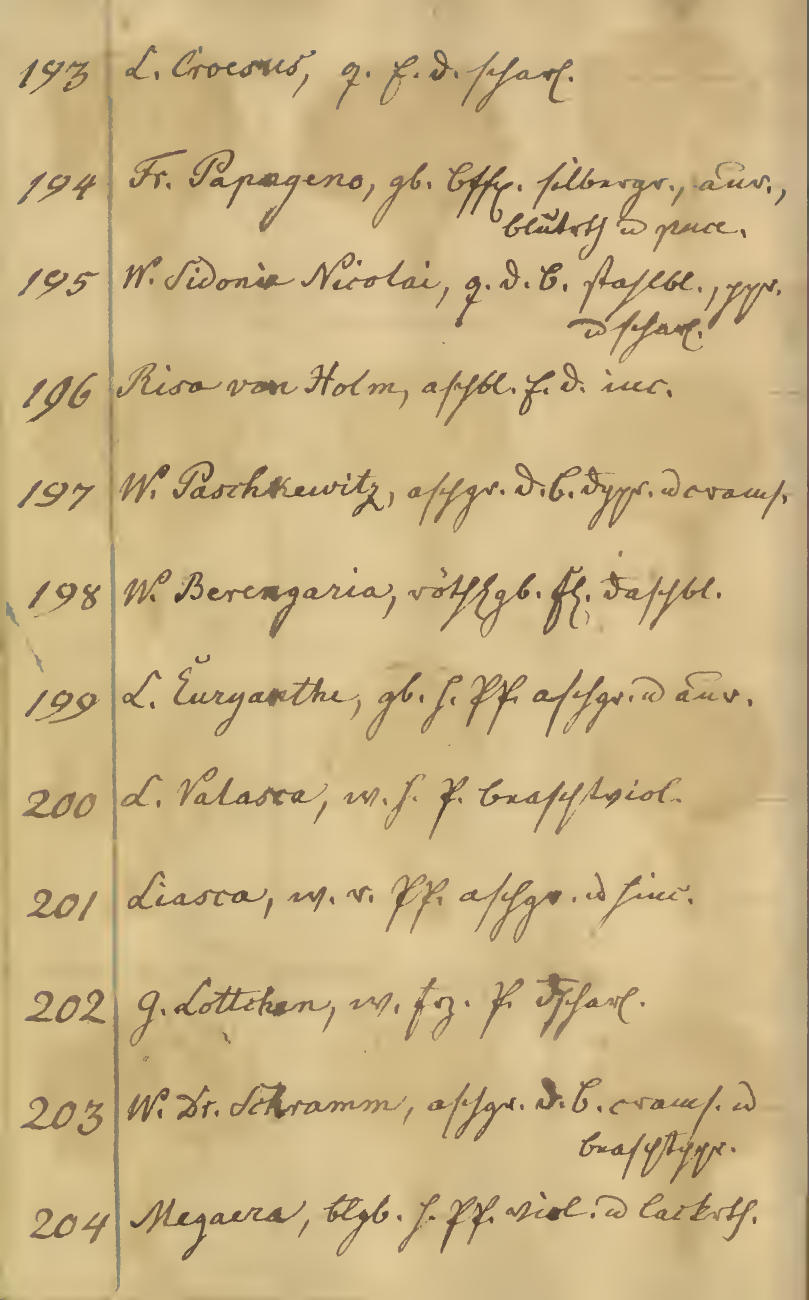 193 L. Croesus, g. f. d. scharl.
194 Fr. Papageno, gb. silbergr., aur.,
blutrth u puce.
195 W. Sidonie Nicolai, g. d. b. stahlbl., ppr.
u scharl.
196 Risa von Holm, aschbl. f. d. inc.
197 W. Paschkewitz, aschgr. d. b. dppr. u crams.
198 W. Berengaria, röthlgb. daschbl.
199 L. Euryanthe, gb. h. PP. aschgr. u aur.
200 L. Valasca, w. h. P. viol.
201 Liasca, w. r. PP. aschgr. u hinc.
202 G. Lottchen, w. frz. P. dscharl.
203 W. Dr. Schramm, aschgr. d. b. crams. u
204 Megaera, blgb. h. PP. viol. u lackrth.